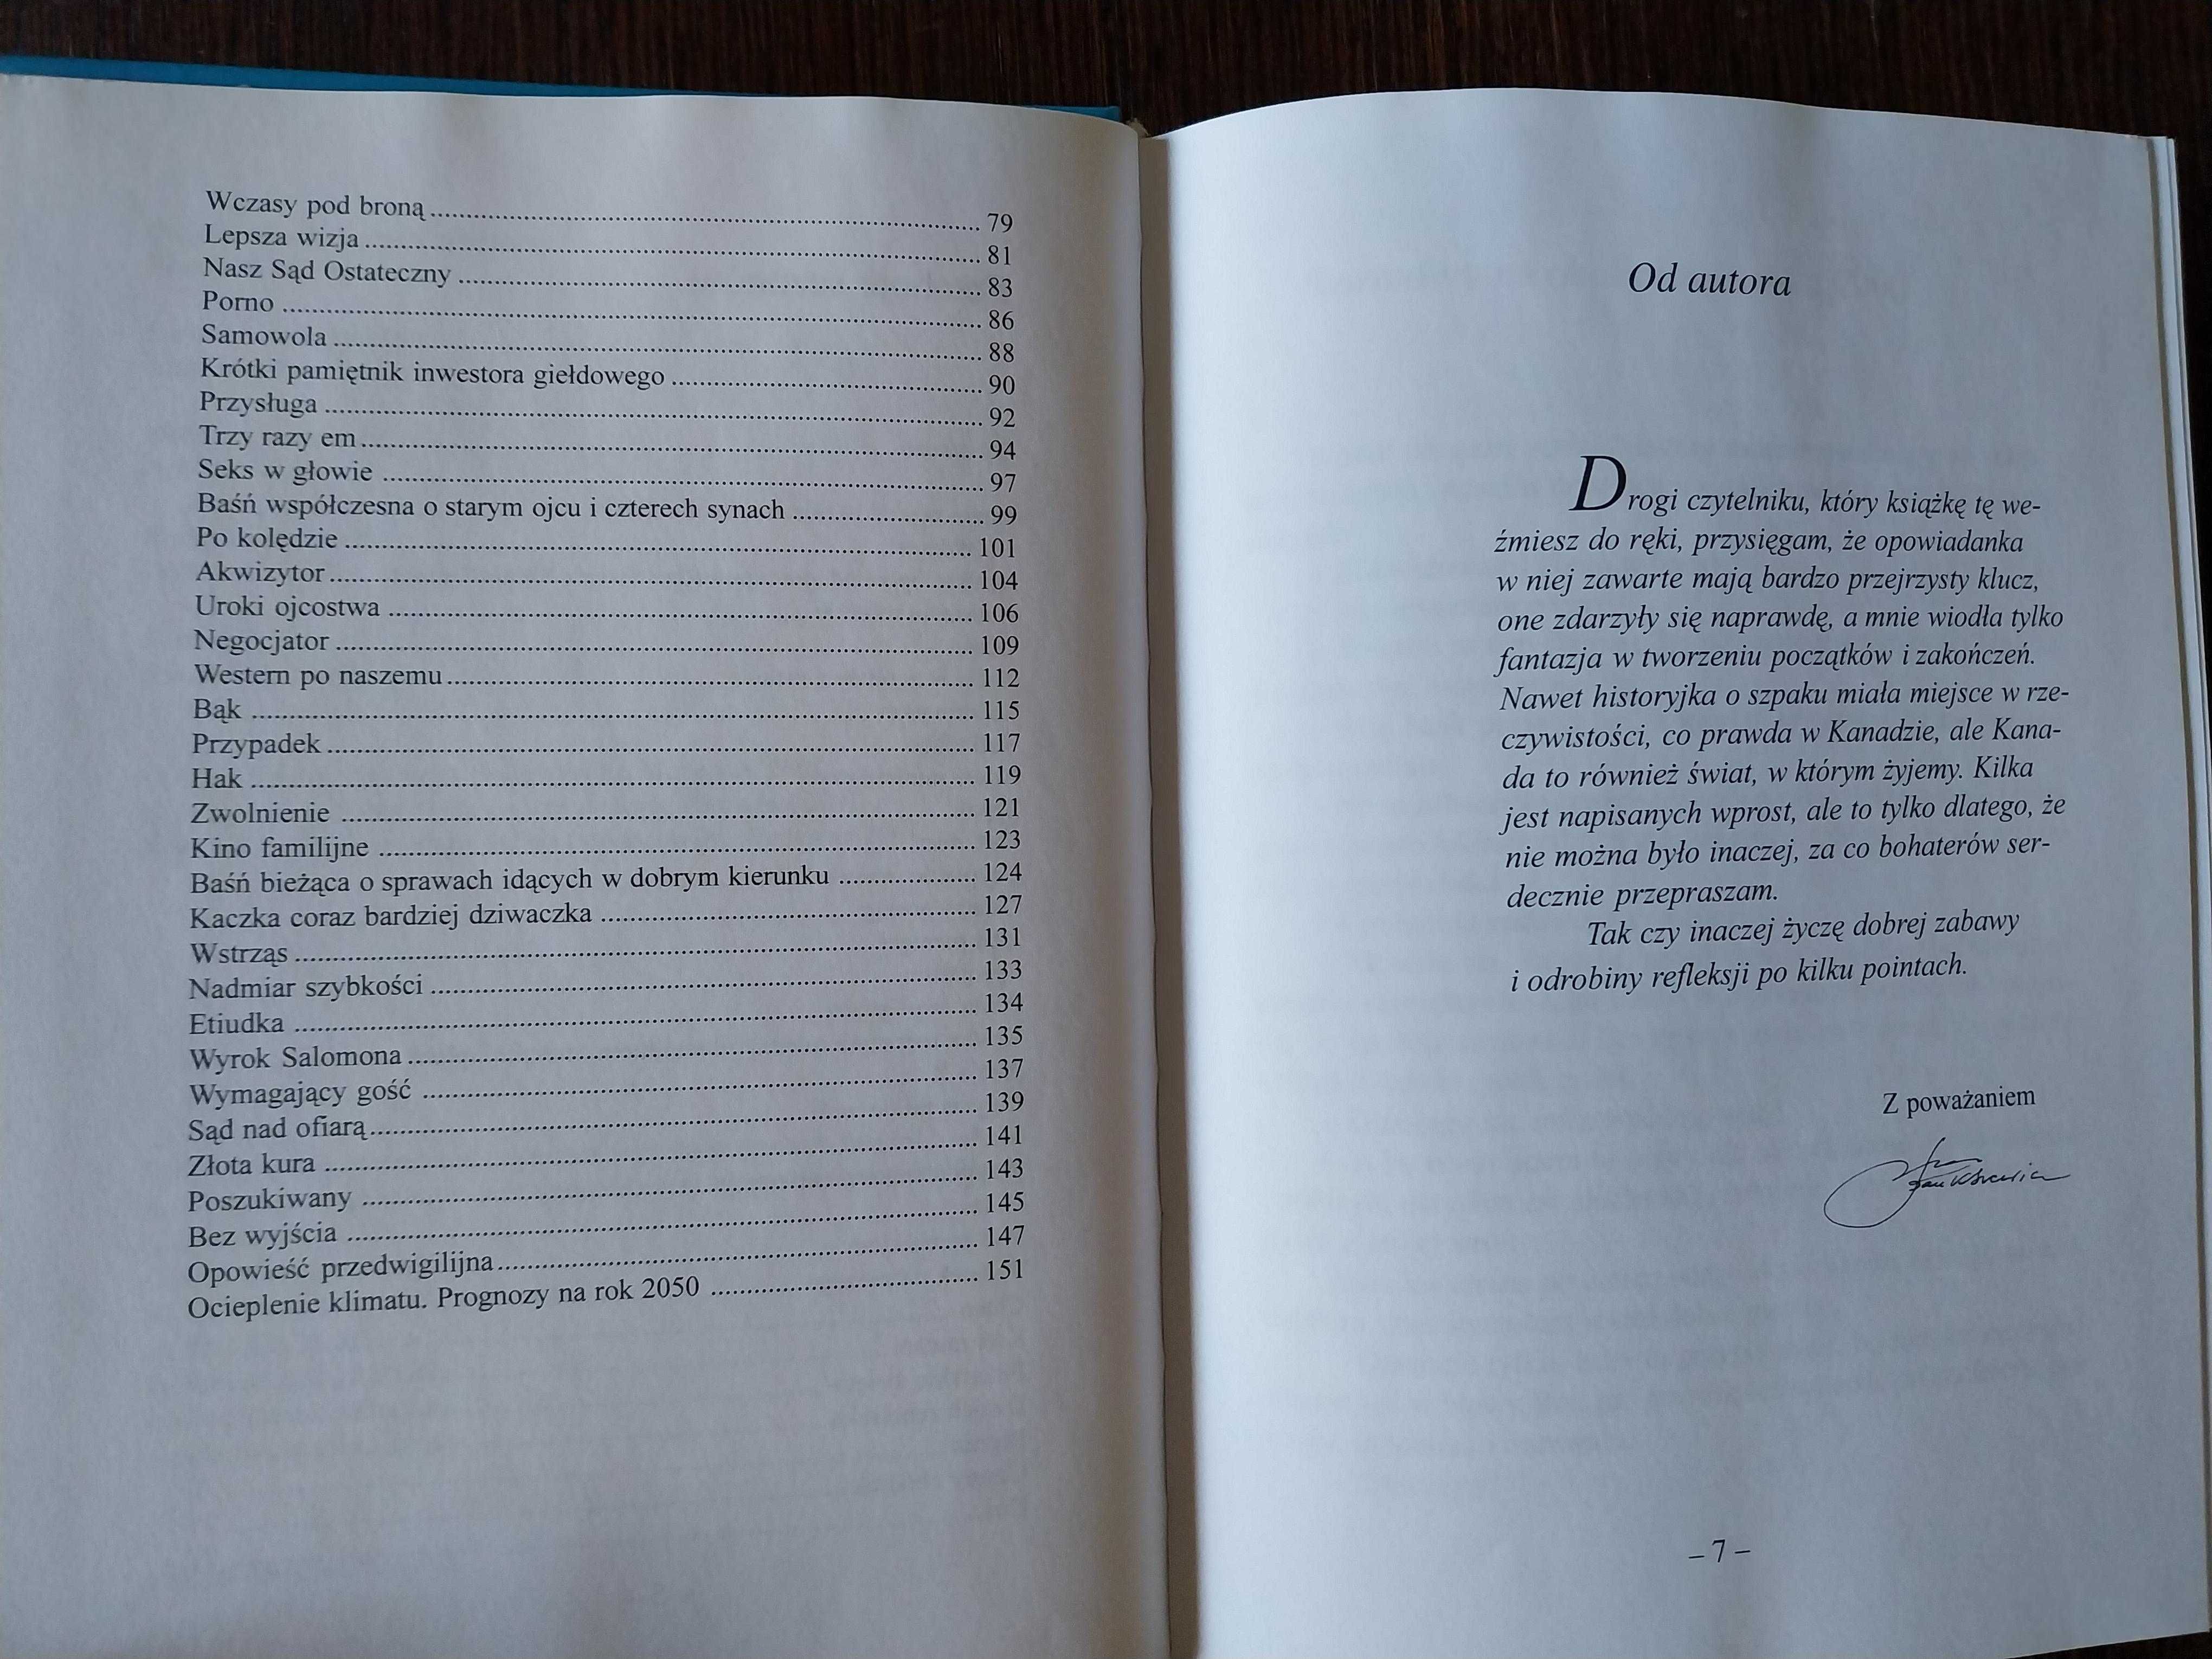 Wczasy pod broną ........ 79
Lepsza wizja ........ 81
Nasz Sąd Ostateczny ........ 83
Porno ........ 86
Samowola ........ 88
Krótki pamiętnik inwestora giełdowego ........ 90
Przysługa ........ 92
Trzy razy em ........ 94
Seks w głowie ........ 97
Baśń współczesna o starym ojcu i czterech synach ........ 99
Po kolędzie ........ 101
Akwizytor ........ 104
Uroki ojcostwa ........ 106
Negocjator ........ 109
Western po naszemu ........ 112
Bąk ........ 115
Przypadek ........ 117
Hak ........ 119
Zwolnienie ........ 121
Kino familijne ........ 123
Baśń bieżąca o sprawach idących w dobrym kierunku ........ 124
Kaczka coraz bardziej dziwaczka ........ 127
Wstrząs ........ 131
Nadmiar szybkości ........ 133
Etiudka ........ 134
Wyrok Salomona ........ 135
Wymagający gość ........ 137
Sąd nad ofiarą ........ 139
Złota kura ........ 141
Poszukiwany ........ 143
Bez wyjścia ........ 145
Opowieść przedwigilijna ........ 147
Ocieplenie klimatu. Prognozy na rok 2050 ........ 151
Od autora
Drogi czytelniku, który książkę tę we-
źmiesz do ręki, przysięgam, że opowiadanka
w niej zawarte mają bardzo przejrzysty klucz,
one zdarzyły się naprawdę, a mnie wiodła tylko
fantazja w tworzeniu początków i zakończeń.
Nawet historyjka o szpaku miała miejsce w rze-
czywistości, co prawda w Kanadzie, ale Kana-
da to również świat, w którym żyjemy. Kilka
jest napisanych wprost, ale to tylko dlatego, że
nie można było inaczej, za co bohaterów ser-
decznie przepraszam.
Tak czy inaczej życzę dobrej zabawy
i odrobiny refleksji po kilku pointach.
Z poważaniem
– 7 –